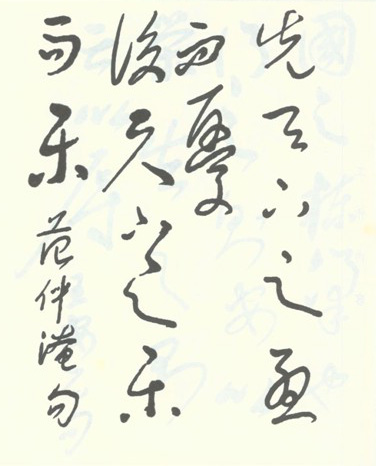 先天下之憂
而憂
後天下之樂
而樂 范仲淹句